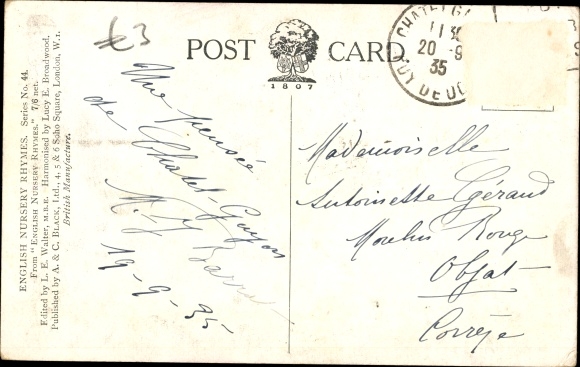 £3
POST CARD.
1807
CHATEL-G
11 30
20-9
35
PUY DE DO
ENGLISH NURSERY RHYMES. Series No. 44.
From "ENGLISH NURSERY RHYMES." 7/6 net.
Edited by L. E. Walter, M.B.E. Harmonised by Lucy E. Broadwood.
Published by A. & C. BLACK, Ltd., 4, 5 & 6 Soho Square, London, W.1.
British Manufacture.
Une pensée
de Chatel-Guyon
M.
19-9-35
Mademoiselle
Antoinette Géraud
Moulin Rouge
Objat
Corrèze